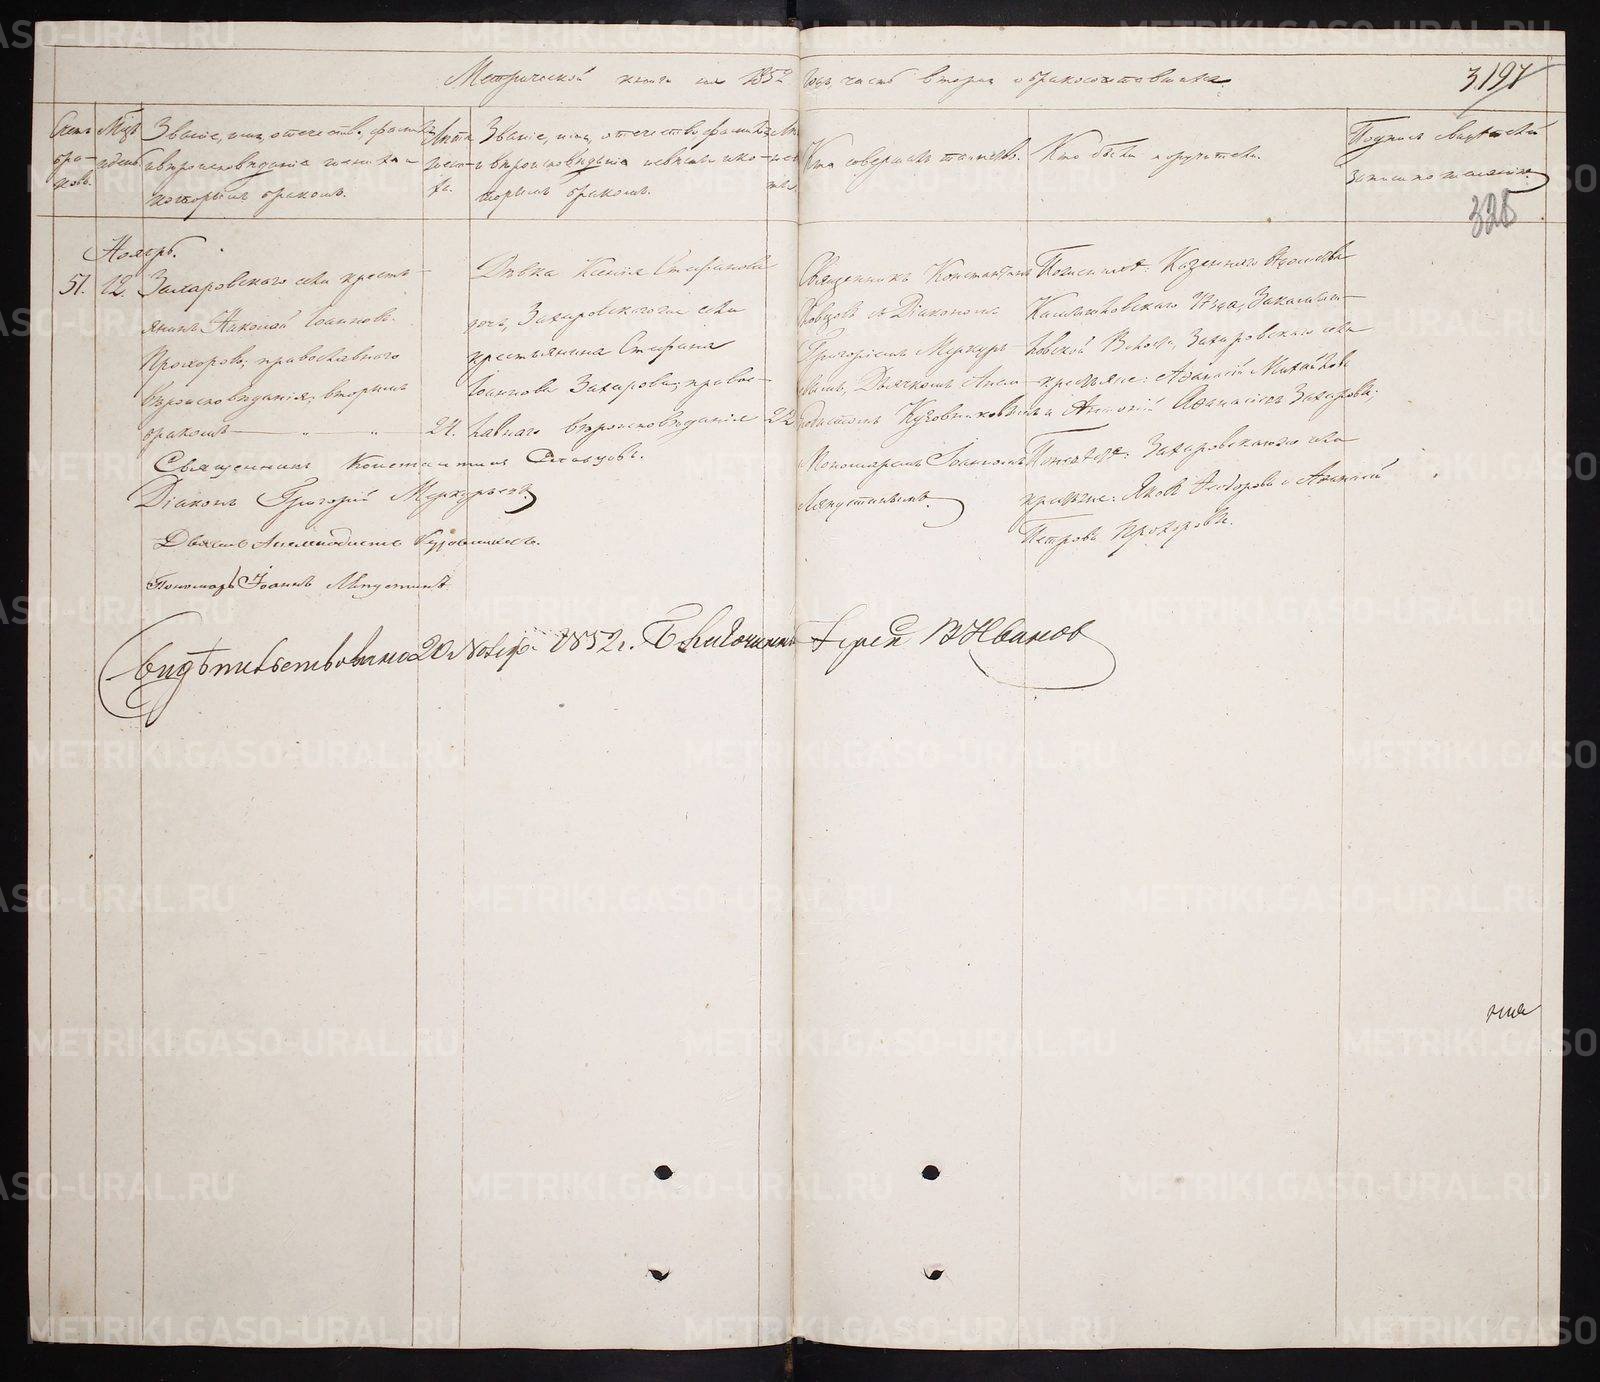 Метрической книги на 1852 годъ, часть вторая о бракосочетавшихся.
3197
328
Счетъ браковъ.
Мѣс. и день
Званіе, имя, отечество, фамилія
и вѣроисповѣданіе жениха и
которымъ бракомъ.
Лѣта жениха.
Званіе, имя, отечество, фамилія
и вѣроисповѣданіе невѣсты и ко-
торымъ бракомъ.
Кто совершалъ таинство.
Кто были поручители.
Подпись свидѣтелей
записи по желанію.
Ноябрь.
51.
12.
Захаровскаго села кресть-
янинъ Николай Іоанновъ
Прохоровъ, православнаго
вѣроисповѣданія, вторымъ
бракомъ
24.
Дѣвка Ксенія Стефанова
дочь, Захаровскаго же села
крестьянина Стефана
Іоаннова Захарова, правос-
лавнаго вѣроисповѣданія
22
Священникъ Константинъ
Словцовъ съ Діакономъ
Григоріемъ Меркурь-
евымъ, Дьячкомъ Анем-
подистомъ Кузовниковымъ и
Пономаремъ Іоанномъ
Ляпустинымъ.
По женихѣ: Казеннаго вѣдомства
Камышловскаго Уѣзда, Закамыш-
ловской Волости, Захаровскаго села
крестьяне: Афанасій Михайловъ
и Антоній Афанасіевъ Захаровы.
По невѣстѣ: Захаровскаго же села
крестьяне: Яковъ Феодоровъ и Афанасій
Петровъ Прохоровы.
Священникъ Константинъ Словцовъ.
Діаконъ Григорій Меркурьевъ
Дьячекъ Анемподистъ Кузовниковъ.
Пономарь Іоаннъ Ляпустинъ
Свидѣтельствовано 20 Ноября 1852 г. Благочинный Іерей В Ивановъ
METRIKI.GASO-URAL.RU